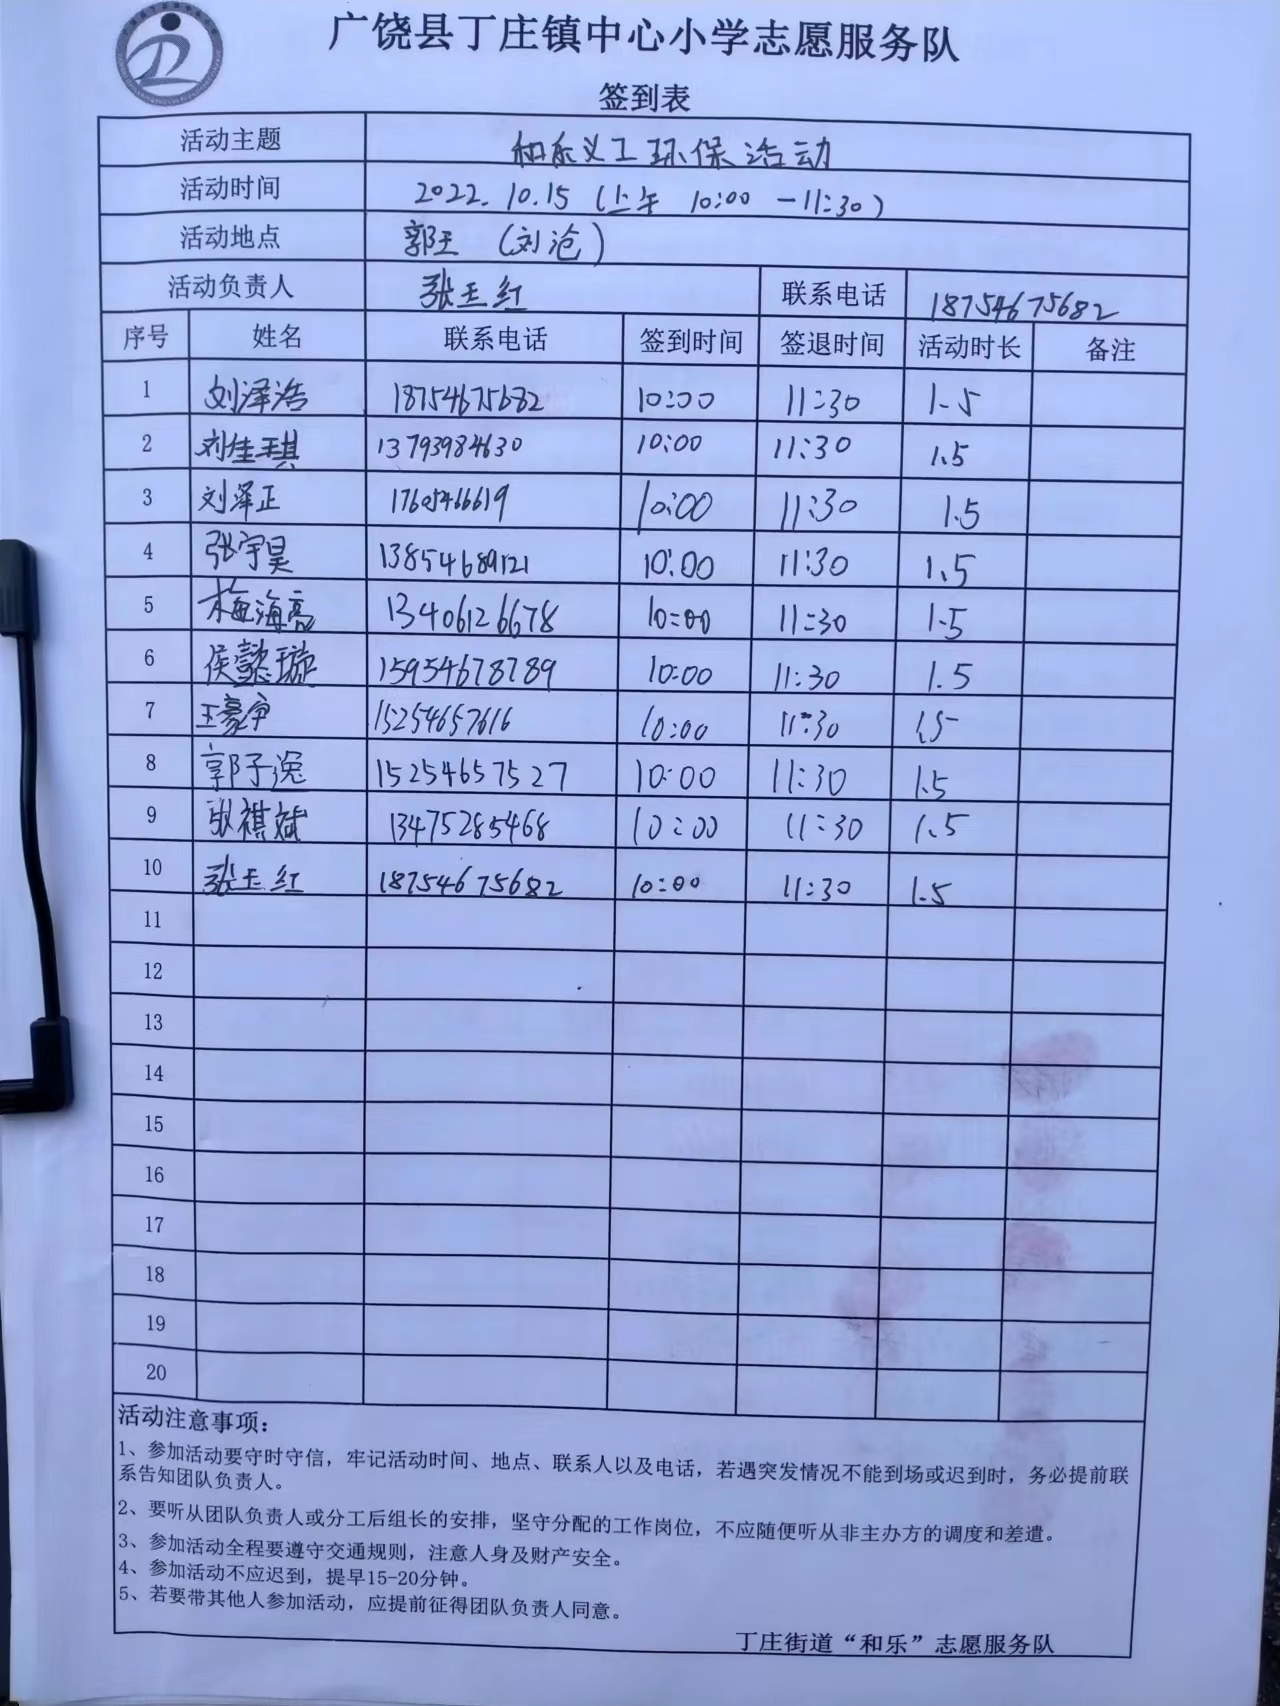 广饶县丁庄镇中心小学志愿服务队
签到表
活动主题 和乐义工环保活动
活动时间 2022.10.15 (上午 10:00 -11:30)
活动地点 郭王 (刘沧)
活动负责人 张玉红 联系电话 18754675682
序号 姓名 联系电话 签到时间 签退时间 活动时长 备注
1 刘泽浩 18754675682 10:00 11:30 1.5
2 刘佳琪 13793984630 10:00 11:30 1.5
3 刘泽正 17605466619 10:00 11:30 1.5
4 张宇昊 13854689121 10:00 11:30 1.5
5 梅海亮 13406126678 10:00 11:30 1.5
6 侯懿璇 15954678789 10:00 11:30 1.5
7 王豪 15254657616 10:00 11:30 1.5
8 郭子逸 15254657527 10:00 11:30 1.5
9 张祺斌 13475285468 10:00 11:30 1.5
10 张玉红 18754675682 10:00 11:30 1.5
11
12
13
14
15
16
17
18
19
20
活动注意事项：
1、参加活动要守时守信，牢记活动时间、地点、联系人以及电话，若遇突发情况不能到场或迟到时，务必提前联
系告知团队负责人。
2、要听从团队负责人或分工后组长的安排，坚守分配的工作岗位，不应随便听从非主办方的调度和差遣。
3、参加活动全程要遵守交通规则，注意人身及财产安全。
4、参加活动不应迟到，提早15-20分钟。
5、若要带其他人参加活动，应提前征得团队负责人同意。
丁庄街道“和乐”志愿服务队